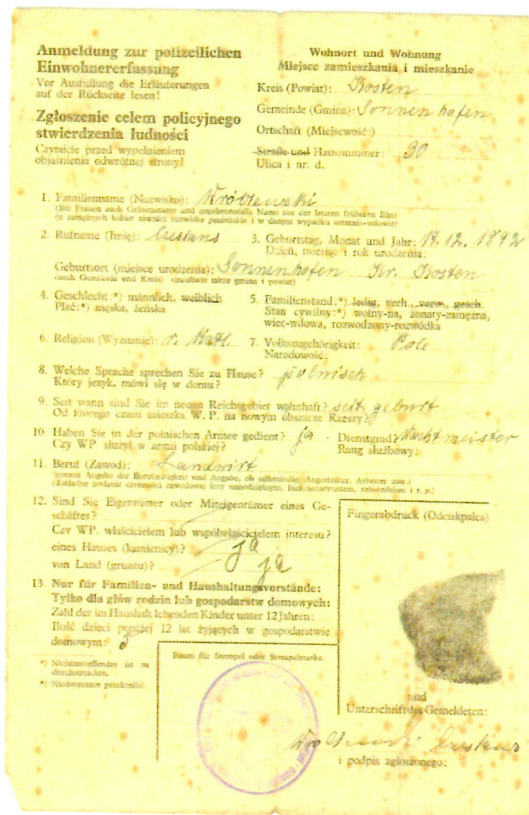 Anmeldung zur polizeilichen
Einwohnererfassung
Vor Ausfüllung die Erläuterungen
auf der Rückseite lesen!
Zgłoszenie celem policyjnego
stwierdzenia ludności
Czytajcie przed wypełnieniem
objaśnienia odwrotnej strony!
Wohnort und Wohnung
Miejsce zamieszkania i mieszkanie
Kreis (Powiat): Kosten
Gemeinde (Gmina): Sonnenhofen
Ortschaft (Miejscowość:)
Straße und Hausnummer: 30
Ulica i nr. d.
1. Familienname (Nazwisko):
2. Rufname (Imię):
3. Geburtstag, Monat und Jahr: 12. 1892
Dzień, miesiąc i rok urodzenia:
Geburtsort (miejsce urodzenia): Sonnenhofen Kr. Kosten
(auch Gemeinde und Kreis)
4. Geschlecht:*) männlich, weiblich
Płeć:*) męska, żeńska
5. Familienstand:*) ledig, verh., verw., gesch.
Stan cywilny:*) wolny-na, żonaty-zamężna,
wiec-wdowa, rozwodzony-rozwódka
6. Religion (Wyznanie): r. Kath.
7. Volkszugehörigkeit: Pole
Narodowość:
8. Welche Sprache sprechen Sie zu Hause? polnisch
Który język. mówi się w domu?
9. Seit wann sind Sie im neuen Reichsgebiet wohnhaft? seit geburt
Od którego czasu mieszka W. P. na nowym obszarze Rzeszy?
10. Haben Sie in der polnischen Armee gedient? ja Dienstgrad? Wachtmeister
Czy WP służył w armii polskiej? Rang służbowy:
11. Beruf (Zawód): Landwirt
12. Sind Sie Eigentümer oder Miteigentümer eines Geschäftes?
Czy WP. właścicielem lub współwłaścicielem interesu?
eines Hauses (kamienicy)? ja
von Land (gruntu)? ja
13. Nur für Familien- und Haushaltungsvorstände:
Tylko dla głów rodzin lub gospodarstw domowych:
Zahl der im Haushalt lebenden Kinder unter 12 Jahren:
Ilość dzieci poniżej 12 lat żyjących w gospodarstwie
domowym:
*) Nichtzutreffendes ist zu
durchstreichen.
*) Niedotyczące przekreślić.
Raum für Stempel oder Stempelmarke.
Fingerabdruck (Odciskpalca)
und
Unterschrift des Gemeldeten:
i podpis zgłoszonego: